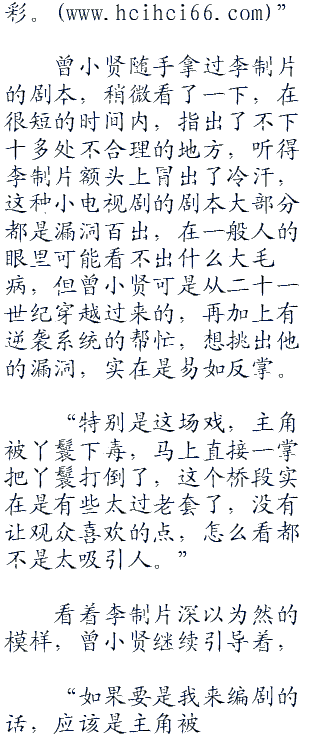 彩。(www.hcihci66.com)”
曾小贤随手拿过李制片
的剧本，稍微看了一下，在
很短的时间内，指出了不下
十多处不合理的地方，听得
李制片额头上冒出了冷汗，
这种小电视剧的剧本大部分
都是漏洞百出，在一般人的
眼里可能看不出什么大毛
病，但曾小贤可是从二十一
世纪穿越过来的，再加上有
逆袭系统的帮忙，想挑出他
的漏洞，实在是易如反掌。
“特别是这场戏，主角
被丫鬟下毒，马上直接一掌
把丫鬟打倒了，这个桥段实
在是有些太过老套了，没有
让观众喜欢的点，怎么看都
不是太吸引人。”
看着李制片深以为然的
模样，曾小贤继续引导着，
“如果要是我来编剧的
话，应该是主角被